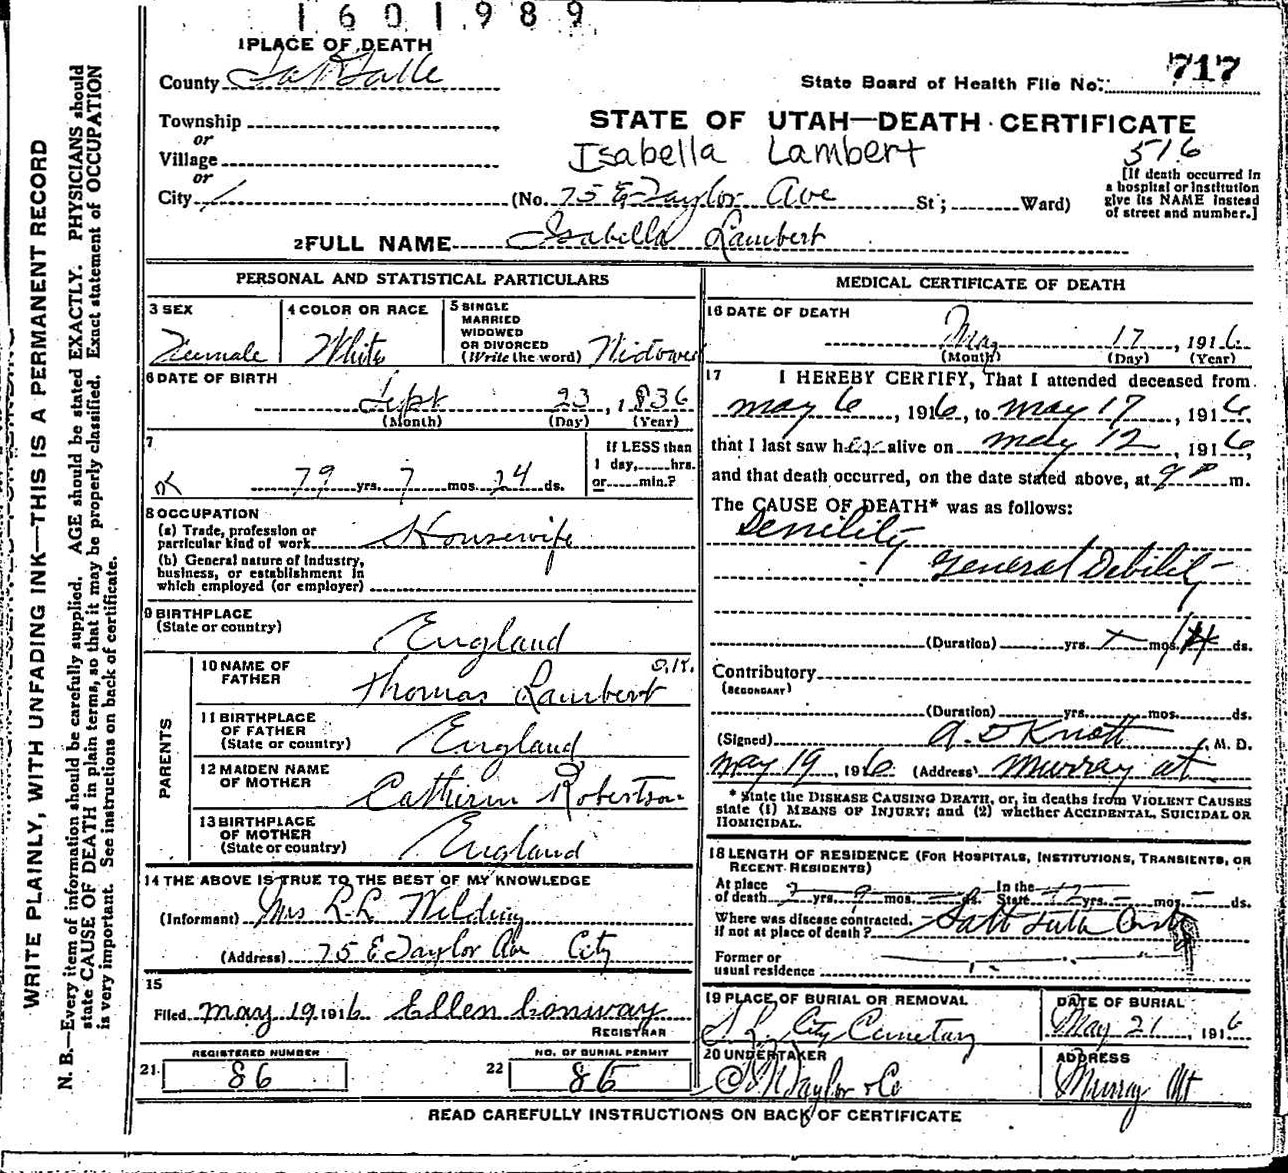 1601989
1 PLACE OF DEATH
County Salt Lake
State Board of Health File No. 717
Township
or
Village
or
City
STATE OF UTAH—DEATH CERTIFICATE
Isabella Lambert
516
[If death occurred in
a hospital or institution
give its NAME instead
of street and number.]
(No. 75 E Taylor Ave St; Ward)
2 FULL NAME Isabella Lambert
PERSONAL AND STATISTICAL PARTICULARS
3 SEX
Female
4 COLOR OR RACE
White
5 SINGLE
MARRIED
WIDOWED
OR DIVORCED
(Write the word) Widowed
6 DATE OF BIRTH
Sept 23, 1836
(Month) (Day) (Year)
7
79 yrs. 7 mos. 24 ds.
If LESS than
1 day, hrs.
or min.?
8 OCCUPATION
(a) Trade, profession or
particular kind of work Housewife
(b) General nature of industry,
business, or establishment in
which employed (or employer)
9 BIRTHPLACE
(State or country)
England
PARENTS
10 NAME OF
FATHER
Thomas Lambert
11 BIRTHPLACE
OF FATHER
(State or country) England
12 MAIDEN NAME
OF MOTHER
Robertson
13 BIRTHPLACE
OF MOTHER
(State or country) England
14 THE ABOVE IS TRUE TO THE BEST OF MY KNOWLEDGE
(Informant) Mrs Wilding
(Address) 75 E Taylor Av City
15
Filed May 19 1916 Ellen Conway
REGISTRAR
REGISTERED NUMBER
21 86
NO. OF BURIAL PERMIT
22 86
MEDICAL CERTIFICATE OF DEATH
16 DATE OF DEATH
May 17, 1916
(Month) (Day) (Year)
17 I HEREBY CERTIFY, That I attended deceased from
May 6, 1916, to May 17, 1916
that I last saw her alive on May 12, 1916,
and that death occurred, on the date stated above, at 9 P m.
The CAUSE OF DEATH* was as follows:
Senility
General Debility
(Duration) yrs. mos. 14 ds.
Contributory
(SECONDARY)
(Duration) yrs. mos. ds.
(Signed) Knott, M. D.
May 19, 1916 (Address) Murray
* State the DISEASE CAUSING DEATH, or, in deaths from VIOLENT CAUSES
state (1) MEANS OF INJURY; and (2) whether ACCIDENTAL, SUICIDAL OR
HOMICIDAL.
18 LENGTH OF RESIDENCE (FOR HOSPITALS, INSTITUTIONS, TRANSIENTS, OR
RECENT RESIDENTS)
At place
of death yrs. 9 mos. ds.
In the
State yrs. mos. ds.
Where was disease contracted,
if not at place of death? Salt Lake
Former or
usual residence
19 PLACE OF BURIAL OR REMOVAL
S. L. City Cemetary
DATE OF BURIAL
May 21, 1916
20 UNDERTAKER
Taylor & Co
ADDRESS
Murray
READ CAREFULLY INSTRUCTIONS ON BACK OF CERTIFICATE
WRITE PLAINLY, WITH UNFADING INK—THIS IS A PERMANENT RECORD
N. B.—Every item of information should be carefully supplied. AGE should be stated EXACTLY. PHYSICIANS should
state CAUSE OF DEATH in plain terms, so that it may be properly classified. Exact statement of OCCUPATION
is very important. See instructions on back of certificate.